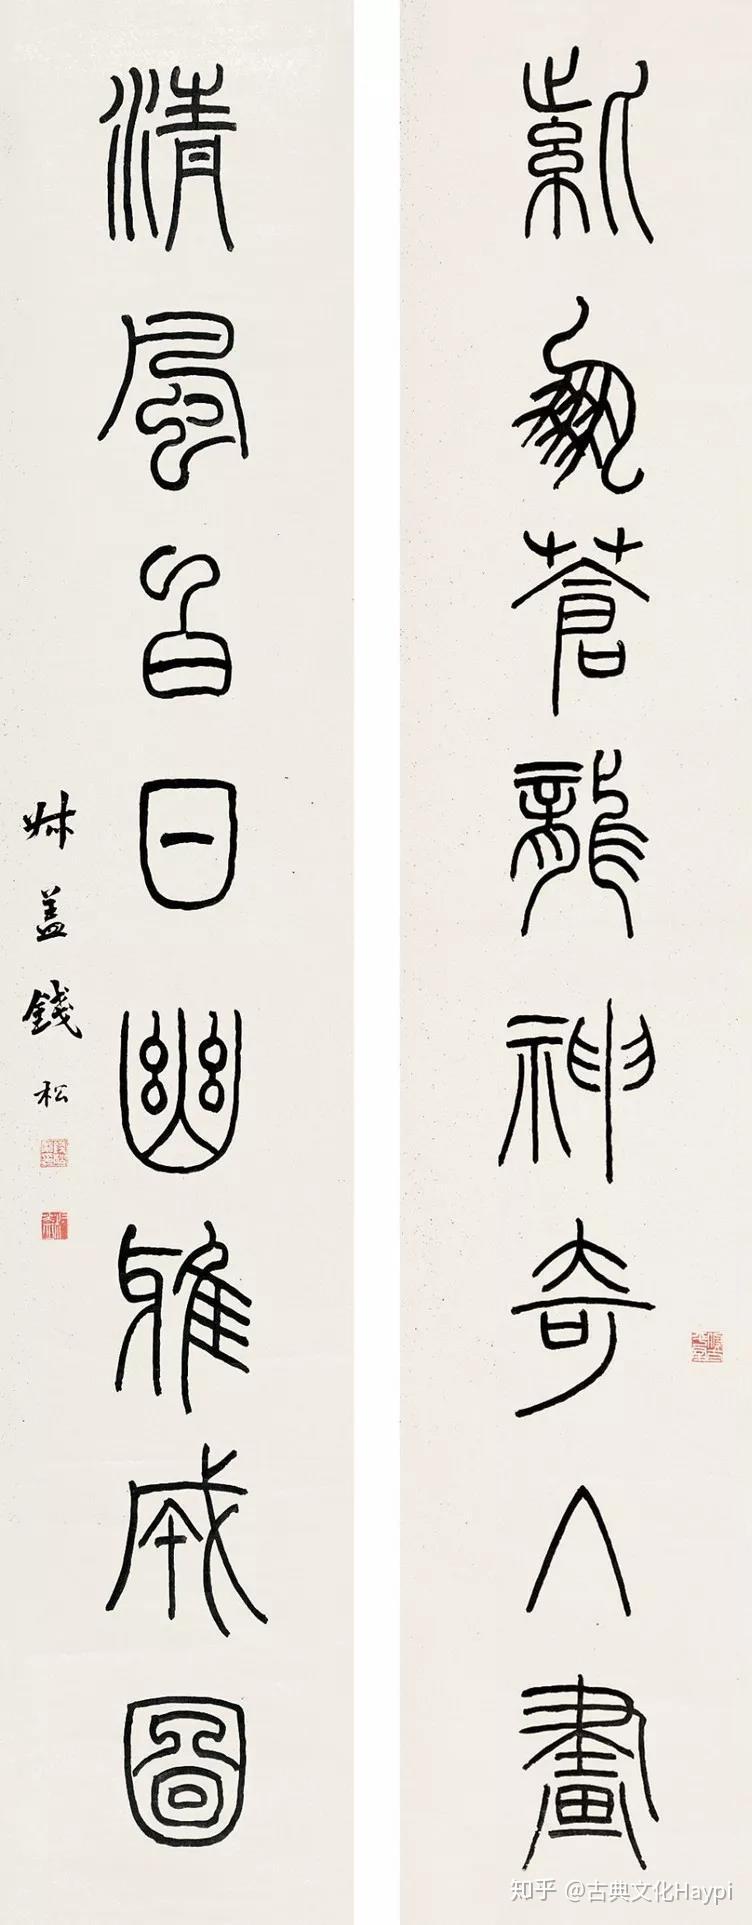 紫鳳蒼龍神奇入畫
清風白日幽雅成圖
叔蓋錢松
知乎 @古典文化Haypi